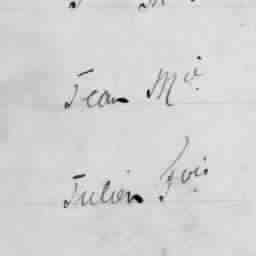 Jean Mie
Julien Fois